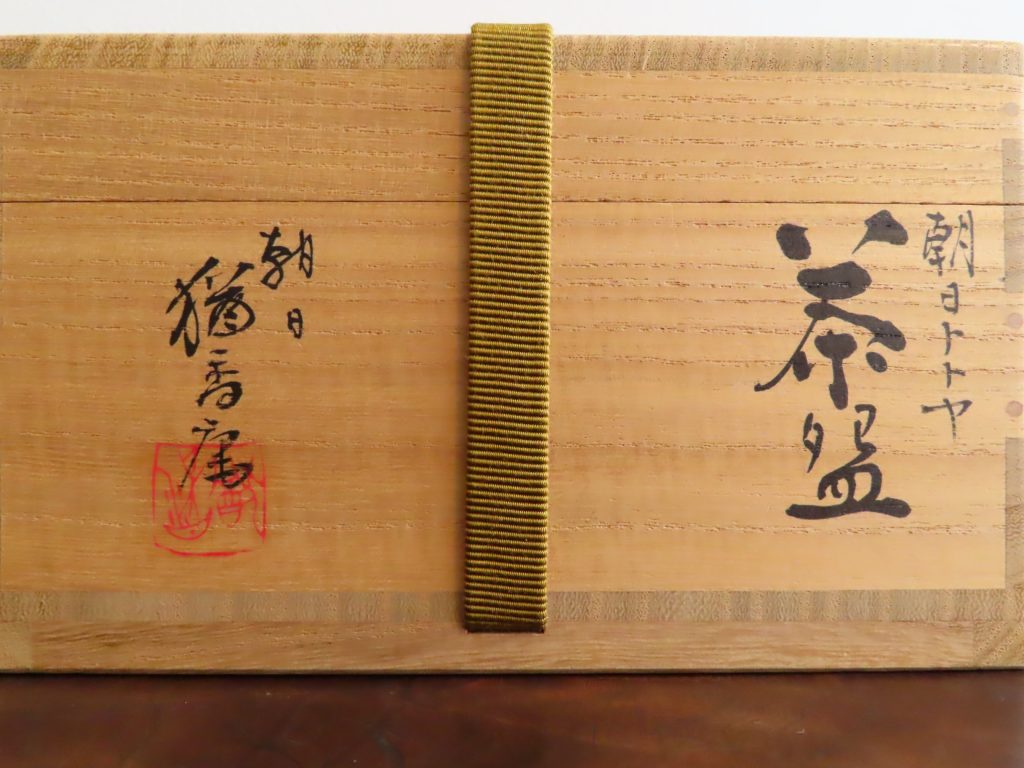 朝日トトヤ
茶盌
朝日
猶香庵